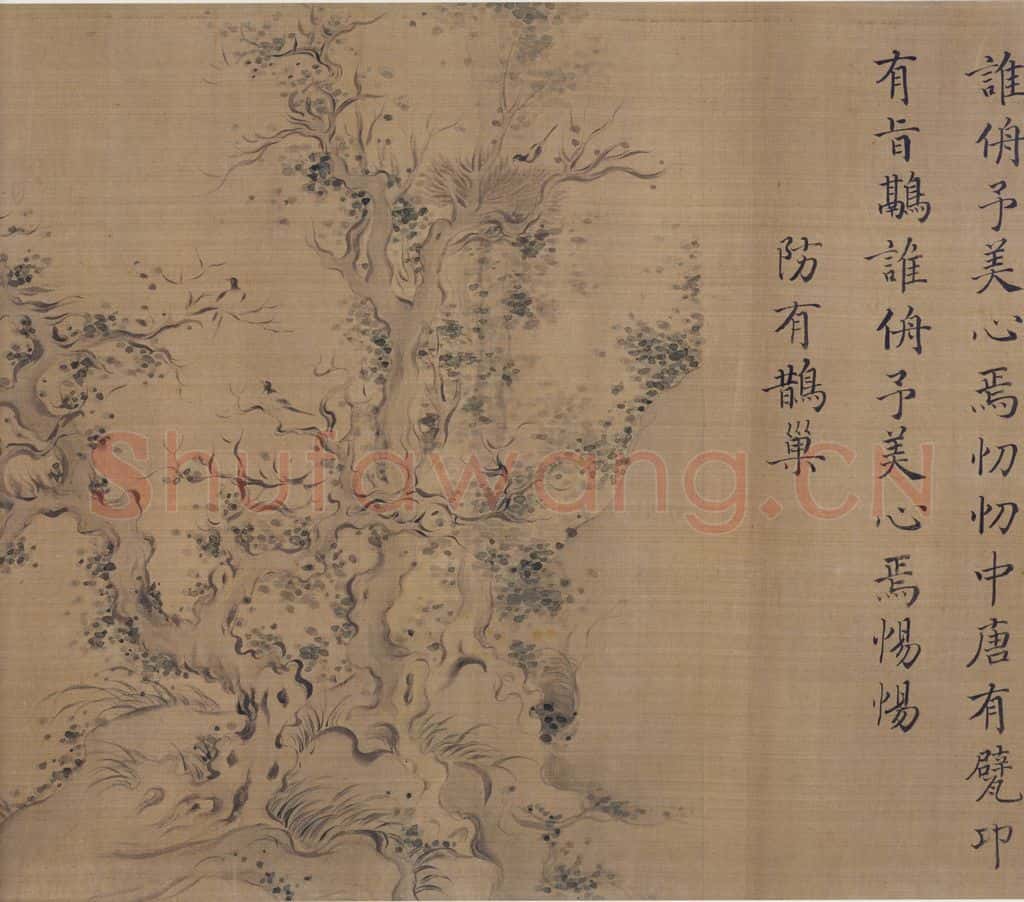 誰侜予美心焉忉忉中唐有甓卭
有旨鷊誰侜予美心焉惕惕
防有鵲巢
Shufawang.CN